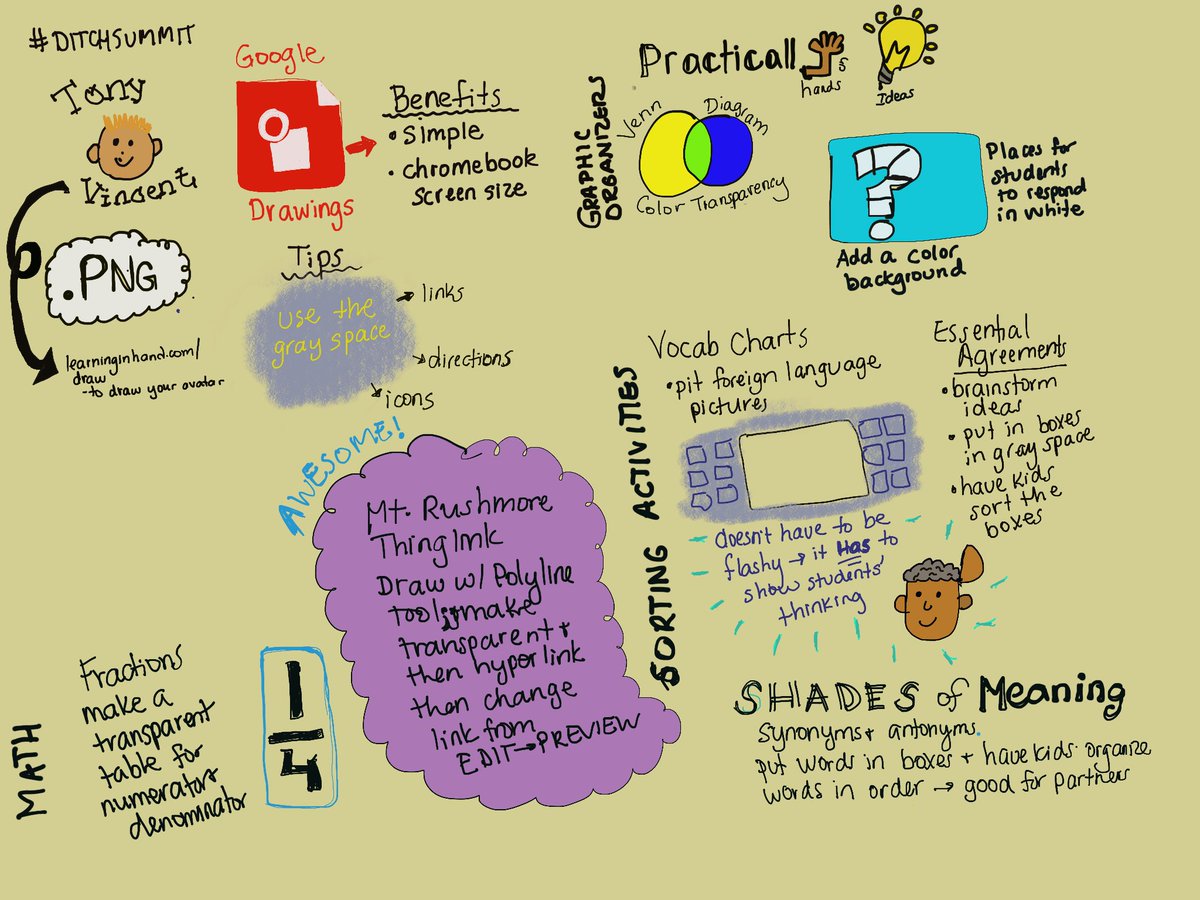 #DITCHSUMMIT
Tony
Vincent
.PNG
learninginhand.com/
draw
-to draw your avatar
Google
Drawings
Benefits
• Simple
• chromebook
screen size
Tips
use the
gray space
links
directions
icons
Practical!
hands
Ideas
GRAPHIC
ORGANIZERS
Venn
Diagram
Color Transparency
?
Places for
students
to respond
in white
Add a color
background
SORTING ACTIVITIES
Vocab Charts
• pit foreign language
pictures
doesn't have to be
flashy → it Has to
show students'
thinking
Essential
Agreements
• brainstorm
ideas
• put in boxes
in gray space
• have kids
sort the
boxes
SHADES of Meaning
synonyms + antonyms.
put words in boxes + have kids organize
words in order → good for partners
AWESOME!
Mt. Rushmore
ThingLink
Draw w/ Polyline
tool make
transparent +
then hyporlink
then change
link from
EDIT → PREVIEW
MATH
Fractions
make a
transparent
table for
numerator +
denominator
1
4